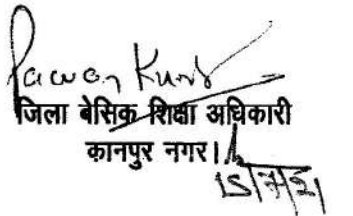 Pawan Kumar
जिला बेसिक शिक्षा अधिकारी
कानपुर नगर।
15/7/21